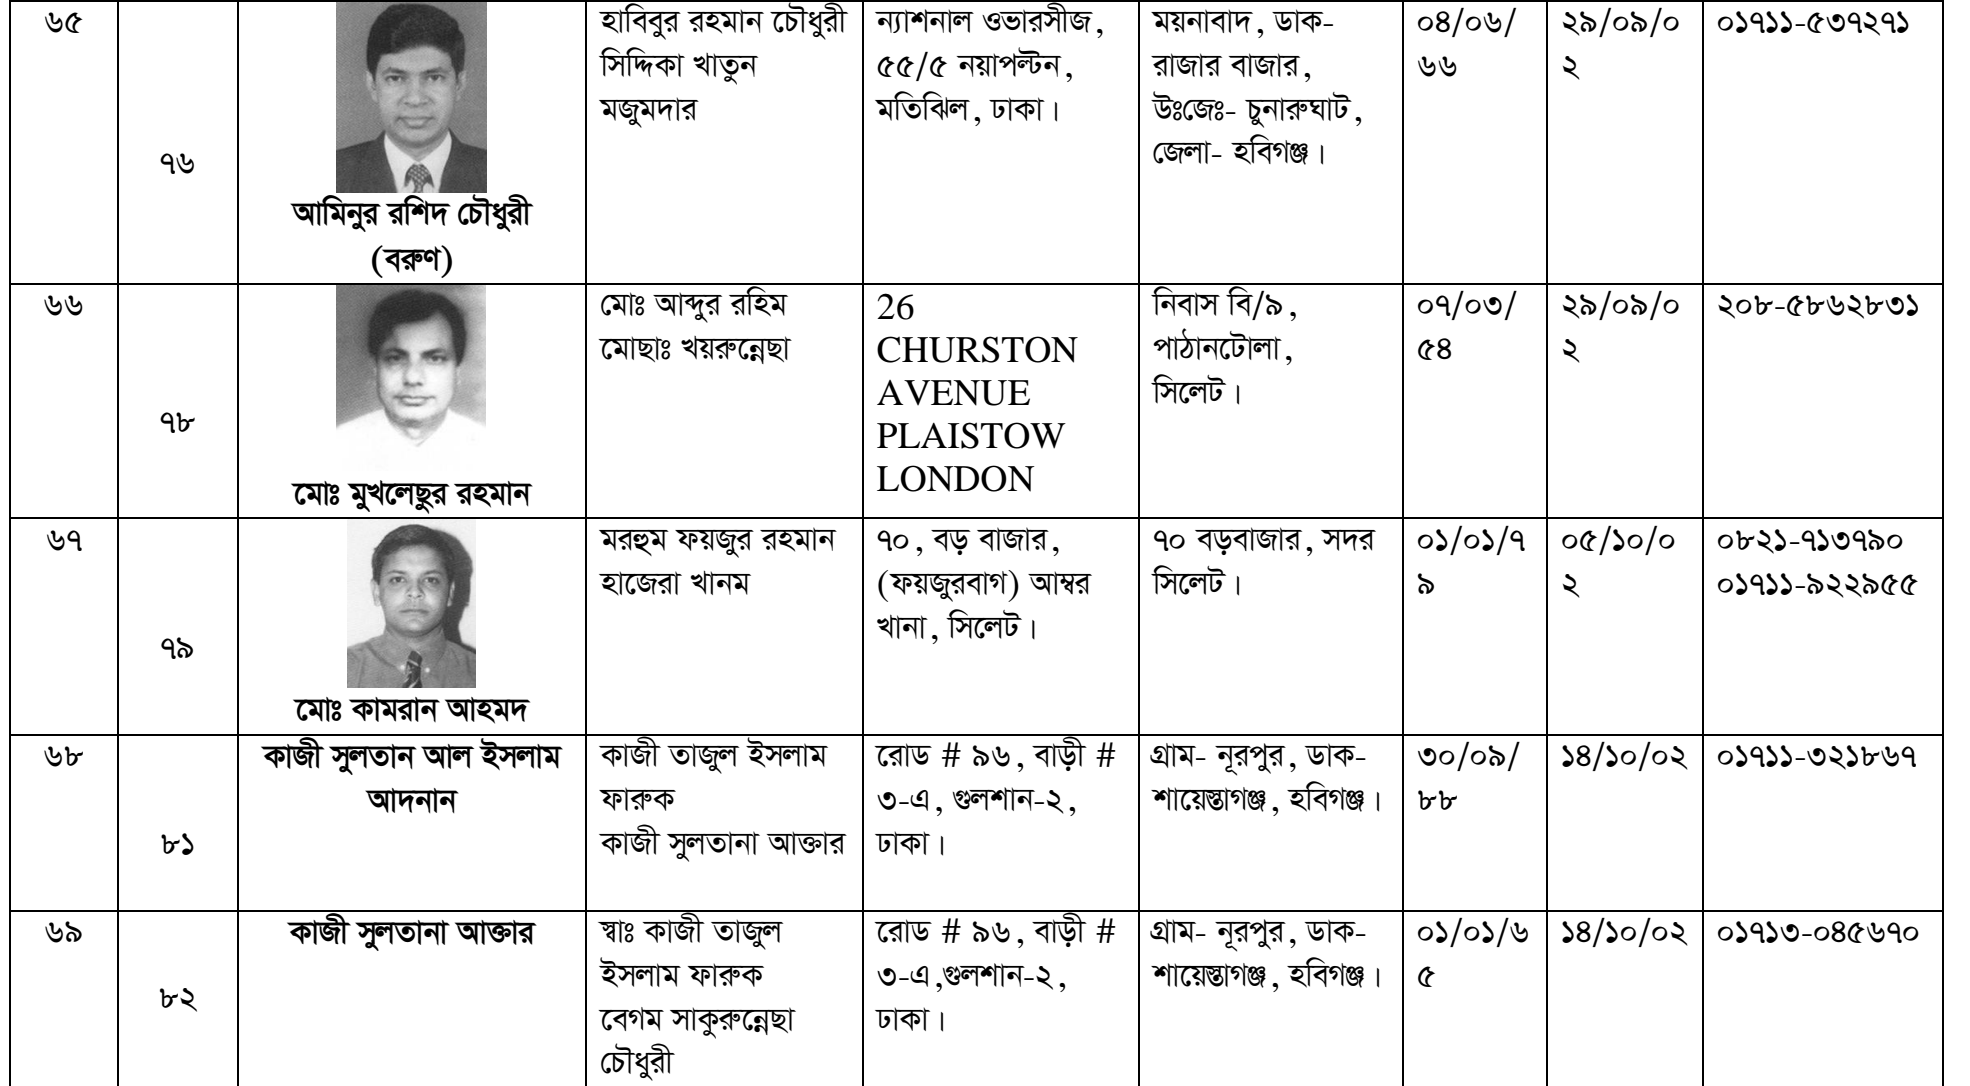 ৬৫
৭৬
আমিনুর রশিদ চৌধুরী
(বরুণ)
হাবিবুর রহমান চৌধুরী
সিদ্দিকা খাতুন
মজুমদার
ন্যাশনাল ওভারসীজ,
৫৫/৫ নয়াপল্টন,
মতিঝিল, ঢাকা।
ময়নাবাদ, ডাক-
রাজার বাজার,
উঃজেঃ- চুনারুঘাট,
জেলা- হবিগঞ্জ।
০৪/০৬/
৬৬
২৯/০৯/০
২
০১৭১১-৫৩৭২৭১
৬৬
৭৮
মোঃ মুখলেছুর রহমান
মোঃ আব্দুর রহিম
মোছাঃ খয়রুন্নেছা
26
CHURSTON
AVENUE
PLAISTOW
LONDON
নিবাস বি/৯,
পাঠানটোলা,
সিলেট।
০৭/০৩/
৫৪
২৯/০৯/০
২
২০৮-৫৮৬২৮৩১
৬৭
৭৯
মোঃ কামরান আহমদ
মরহুম ফয়জুর রহমান
হাজেরা খানম
৭০, বড় বাজার,
(ফয়জুরবাগ) আম্বর
খানা, সিলেট।
৭০ বড়বাজার, সদর
সিলেট।
০১/০১/৭
৯
০৫/১০/০
২
০৮২১-৭১৩৭৯০
০১৭১১-৯২২৯৫৫
৬৮
৮১
কাজী সুলতান আল ইসলাম
আদনান
কাজী তাজুল ইসলাম
ফারুক
কাজী সুলতানা আক্তার
রোড # ৯৬, বাড়ী #
৩-এ, গুলশান-২,
ঢাকা।
গ্রাম- নূরপুর, ডাক-
শায়েস্তাগঞ্জ, হবিগঞ্জ।
৩০/০৯/
৮৮
১৪/১০/০২
০১৭১১-৩২১৮৬৭
৬৯
৮২
কাজী সুলতানা আক্তার
স্বাঃ কাজী তাজুল
ইসলাম ফারুক
বেগম সাকুরুন্নেছা
চৌধুরী
রোড # ৯৬, বাড়ী #
৩-এ,গুলশান-২,
ঢাকা।
গ্রাম- নূরপুর, ডাক-
শায়েস্তাগঞ্জ, হবিগঞ্জ।
০১/০১/৬
৫
১৪/১০/০২
০১৭১৩-০৪৫৬৭০